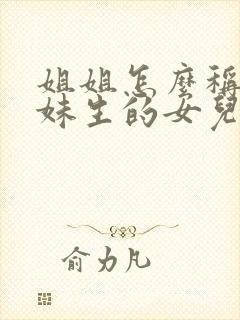 姐姐怎麼稱
妹生的女兒
俞力凡